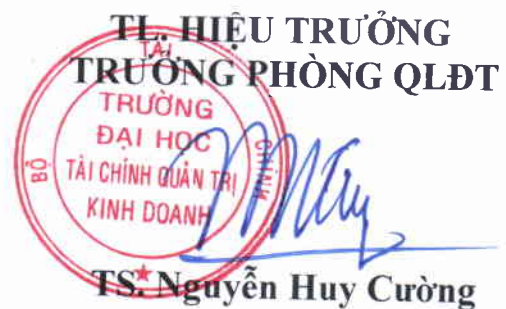 TL. HIỆU TRƯỞNG
TRƯỞNG PHÒNG QLĐT
BỘ TÀI CHÍNH
TRƯỜNG
ĐẠI HỌC
TÀI CHÍNH QUẢN TRỊ
KINH DOANH
TS. Nguyễn Huy Cường